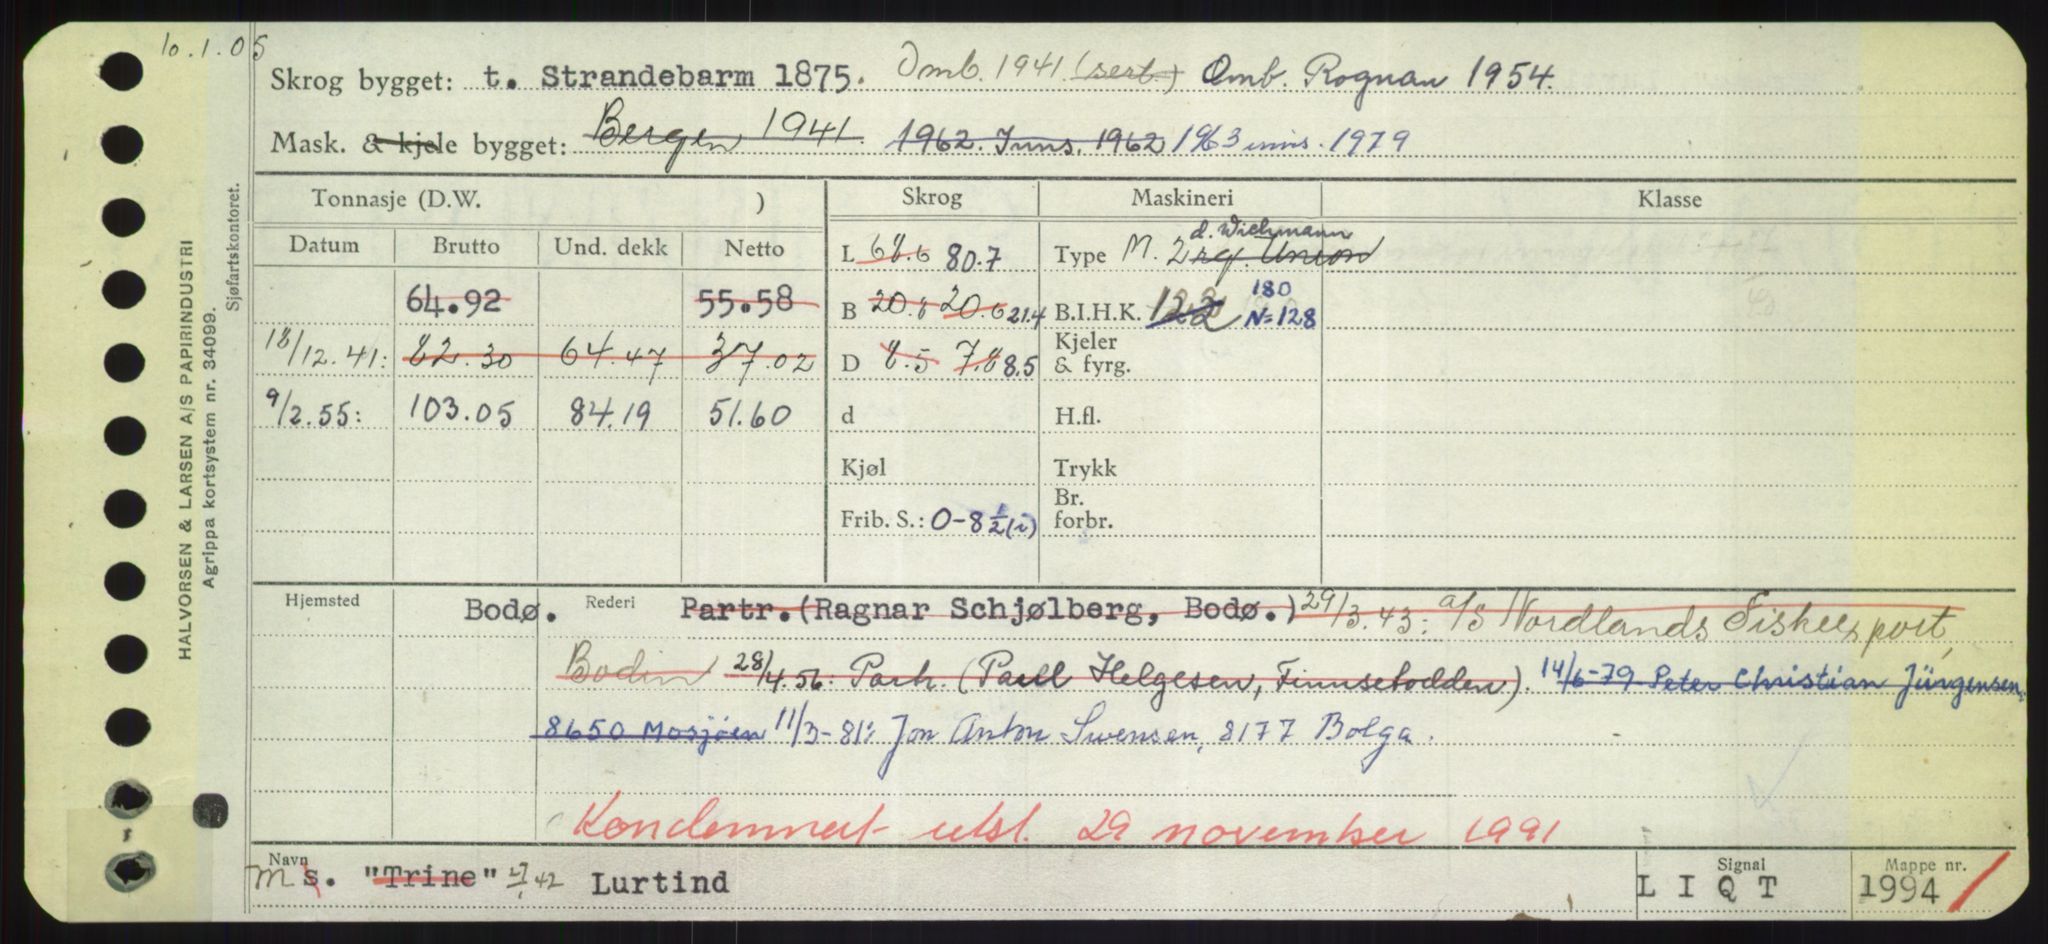 10.1.05
Skrog bygget: t. Strandebarm 1875. Omb. 1941 (sert.) Omb. Rognan 1954.
Mask. & kjele bygget: Bergen 1941. 1962. Inns. 1962 1963 inns. 1979
Tonnasje (D.W. ) Skrog Maskineri Klasse
Datum Brutto Und. dekk Netto L 68.6 80.7 Type M. 2 rg. Union d. Wichmann
64.92 55.58 B 20.8 20.6 21.4 B.I.H.K. 122 180 N=128
18/12.41: 82.30 64.47 37.02 D 8.5 7.8 8.5 Kjeler & fyrg.
9/2.55: 103.05 84.19 51.60 d H.fl.
Kjøl Trykk
Frib. S.: 0-8 1/2 (i) Br. forbr.
Hjemsted Bodø. Rederi Partr. (Ragnar Schjølberg, Bodø.) 29/3.43: a/s Nordlands Fiskeexport,
Bodin 28/4.56: Partr. (Paul Helgesen, Finnsetodden). 14/6-79 Peter Christian Jürgensen,
8650 Mosjøen 11/3-81: Jon Anton Svensen, 8177 Bolga.
Kondemnert utsl. 29 november 1991
Navn Signal Mappe nr.
M s. "Trine" 42 Lurtind LIQT 1994
HALVORSEN & LARSEN A/S PAPIRINDUSTRI
Agrippa kortsystem nr. 34099.
Sjøfartskontoret.